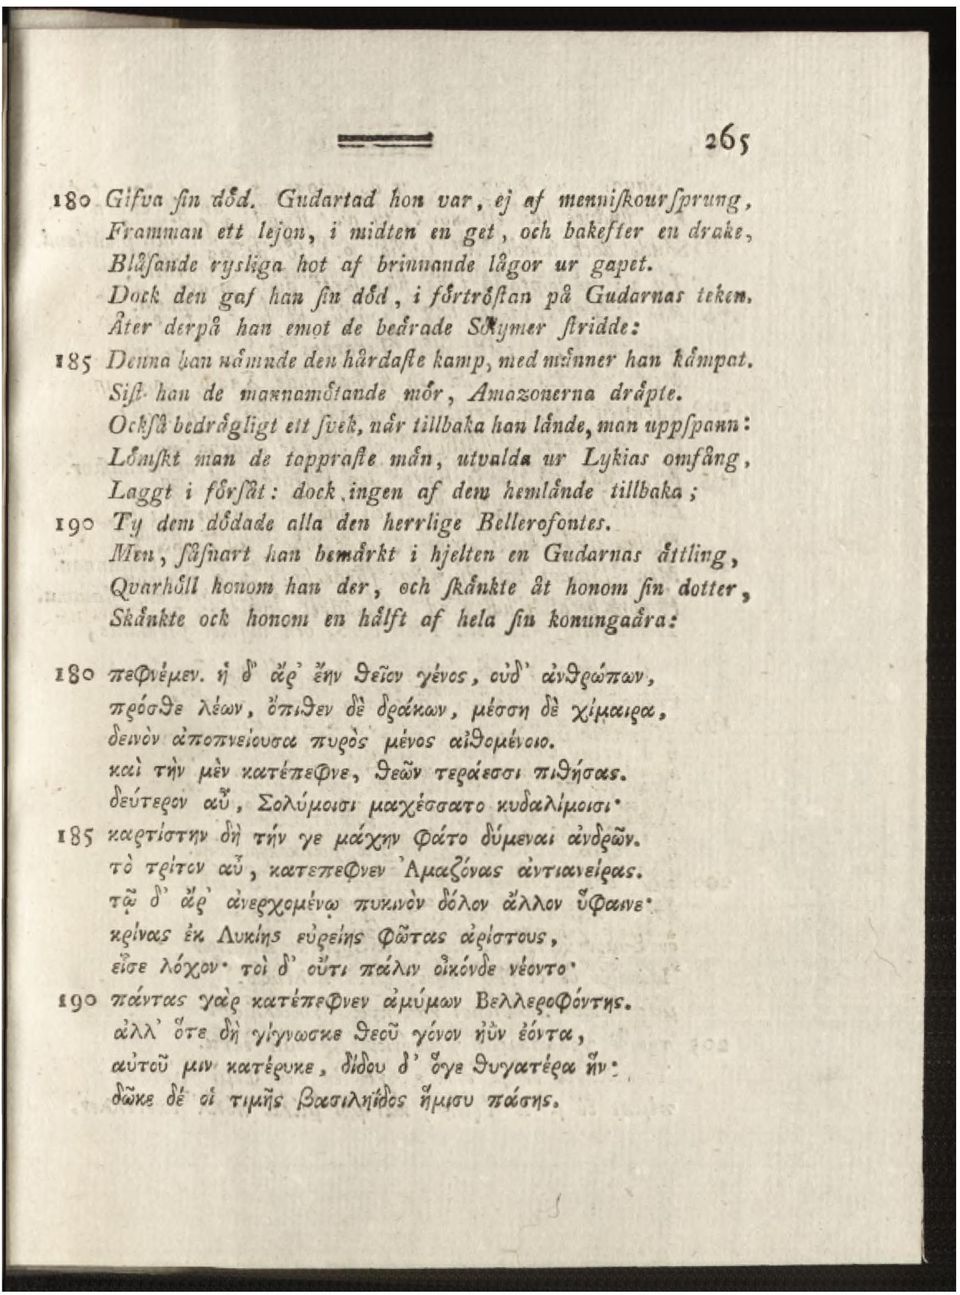 265
180 Gifva ſin dȯd. Gudartad hon var, ej af menniſkourſprung,
Framman ett lejon, i midten en get, och bakefter en drake,
Blåſande rysliga hot af brinnande lågor ur gapet.
Dock den gaf han ſin död, i förtröſtan på Gudarnas teken.
Åter derpå han emot de beärade Solymer ſtridde:
185 Denna han nämnde den hårdaſte kamp, med männer han kämpat.
Siſt han de mannamötande mör, Amazonerna dräpte.
Ockſå bedrägligt ett ſvek, när tillbaka han lände, man uppſpann:
Lömſkt man de tappraſte män, utvalda ur Lykias omfång,
Laggt i förſåt: dock ingen af dem hemlände tillbaka;
190 Ty dem dödade alla den herrlige Bellerofontes.
Men, ſåſnart han bemärkt i hjelten en Gudarnas ättling,
Qvarhöll honom han der, och ſkänkte åt honom ſin dotter,
Skänkte ock honom en hälft af hela ſin konungaära:
180 πεφνέμεν. ἡ δ' ἄρ' ἔην θεῖον γένος, οὐδ' ἀνθρώπων,
πρόσθε λέων, ὄπιθεν δὲ δράκων, μέσση δὲ χίμαιρα,
δεινὸν ἀποπνείουσα πυρὸς μένος αἰθομένοιο.
καὶ τὴν μὲν κατέπεφνε, θεῶν τεράεσσι πιθήσας.
δεύτερον αὖ, Σολύμοισι μαχέσσατο κυδαλίμοισι·
185 καρτίστην δὴ τήν γε μάχην φάτο δύμεναι ἀνδρῶν.
τὸ τρίτον αὖ, κατέπεφνεν Ἀμαζόνας ἀντιανείρας.
τῷ δ' ἄρ' ἀνερχομένῳ πυκινὸν δόλον ἄλλον ὕφαινε·
κρίνας ἐκ Λυκίης εὐρείης φῶτας ἀρίστους,
εἷσε λόχον· τοὶ δ' οὔτι πάλιν οἶκόνδε νέοντο·
190 πάντας γὰρ κατέπεφνεν ἀμύμων Βελλεροφόντης.
ἀλλ' ὅτε δὴ γίγνωσκε θεοῦ γόνον ἠῢν ἐόντα,
αὐτοῦ μιν κατέρυκε, δίδου δ' ὅγε θυγατέρα ἥν·
δῶκε δέ οἱ τιμῆς βασιληΐδος ἥμισυ πάσης.